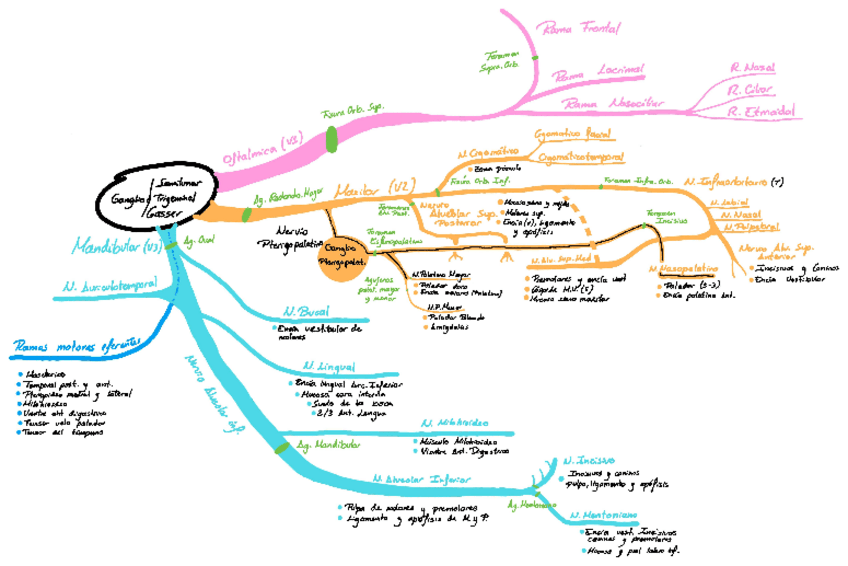 Rama Frontal
Foramen
Supra. Orb.
Rama Lacrimal
Rama Nasociliar
R. Nasal
R. Ciliar
R. Etmoidal
Fisura Orb. Sup.
Oftálmica (V3)
Semilunar
Ganglio Trigeminal
Gasser
Ag. Redondo Mayor
Maxilar (V2)
N. Cigomático
Zona pómulo
Cigomático facial
Cigomáticotemporal
Fisura Orb Inf.
Foramen Infra. Orb.
N. Infraorbitario (T)
N. Labial
N. Nasal
N. Palpebral
Nervio Alv. Sup.
Anterior
Incisivos y Caninos
Encía Vestibular
Nervio
Alveolar Sup.
Posterior
Molares sup.
Encía (v), ligamento
y apófisis
Foramen
Incisivo
N. Alv. Sup. Med
Premolares y encía vest
Mucosa seno maxilar
N. Nasopalatino
Paladar (3-3)
Encía palatina ant.
Nervio
Pterigopalatino
Ganglio
Pterigopalat.
Foramen
Esfenopalatino
Agujeros
palat. mayor
y menor
N. Palatino Mayor
Paladar duro
N. P. Menor
Paladar Blando
Amígdalas
Mandibular (V3)
Ag. Oval
N. Auriculotemporal
Ramas motoras eferentes
Masetérico
Temporal post. y ant.
Pterigoideo medial y lateral
Milohioideo
Vientre ant digástrico
Tensor velo paladar
Tensor del tímpano
N. Bucal
Encía vestibular de
molares
N. Lingual
Encía lingual Arc. Inferior
Mucosa cara interna
Suelo de la boca
2/3 Ant. Lengua
Nervio Alveolar inf.
Ag. Mandibular
N. Milohioideo
Músculo Milohioideo
Vientre Ant. Digástrico
N. Alveolar Inferior
Pulpa de molares y premolares
Ligamento y apófisis de M y P.
N. Incisivo
Incisivos y caninos
Pulpa, ligamento y apófisis
Ag. Mentoniano
N. Mentoniano
Encía vest. Incisivos
caninos y premolares
Mucosa y piel labio inf.